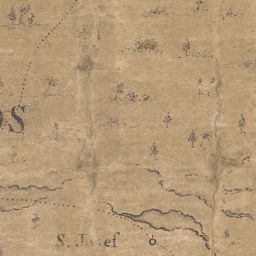 OS
S. Josef